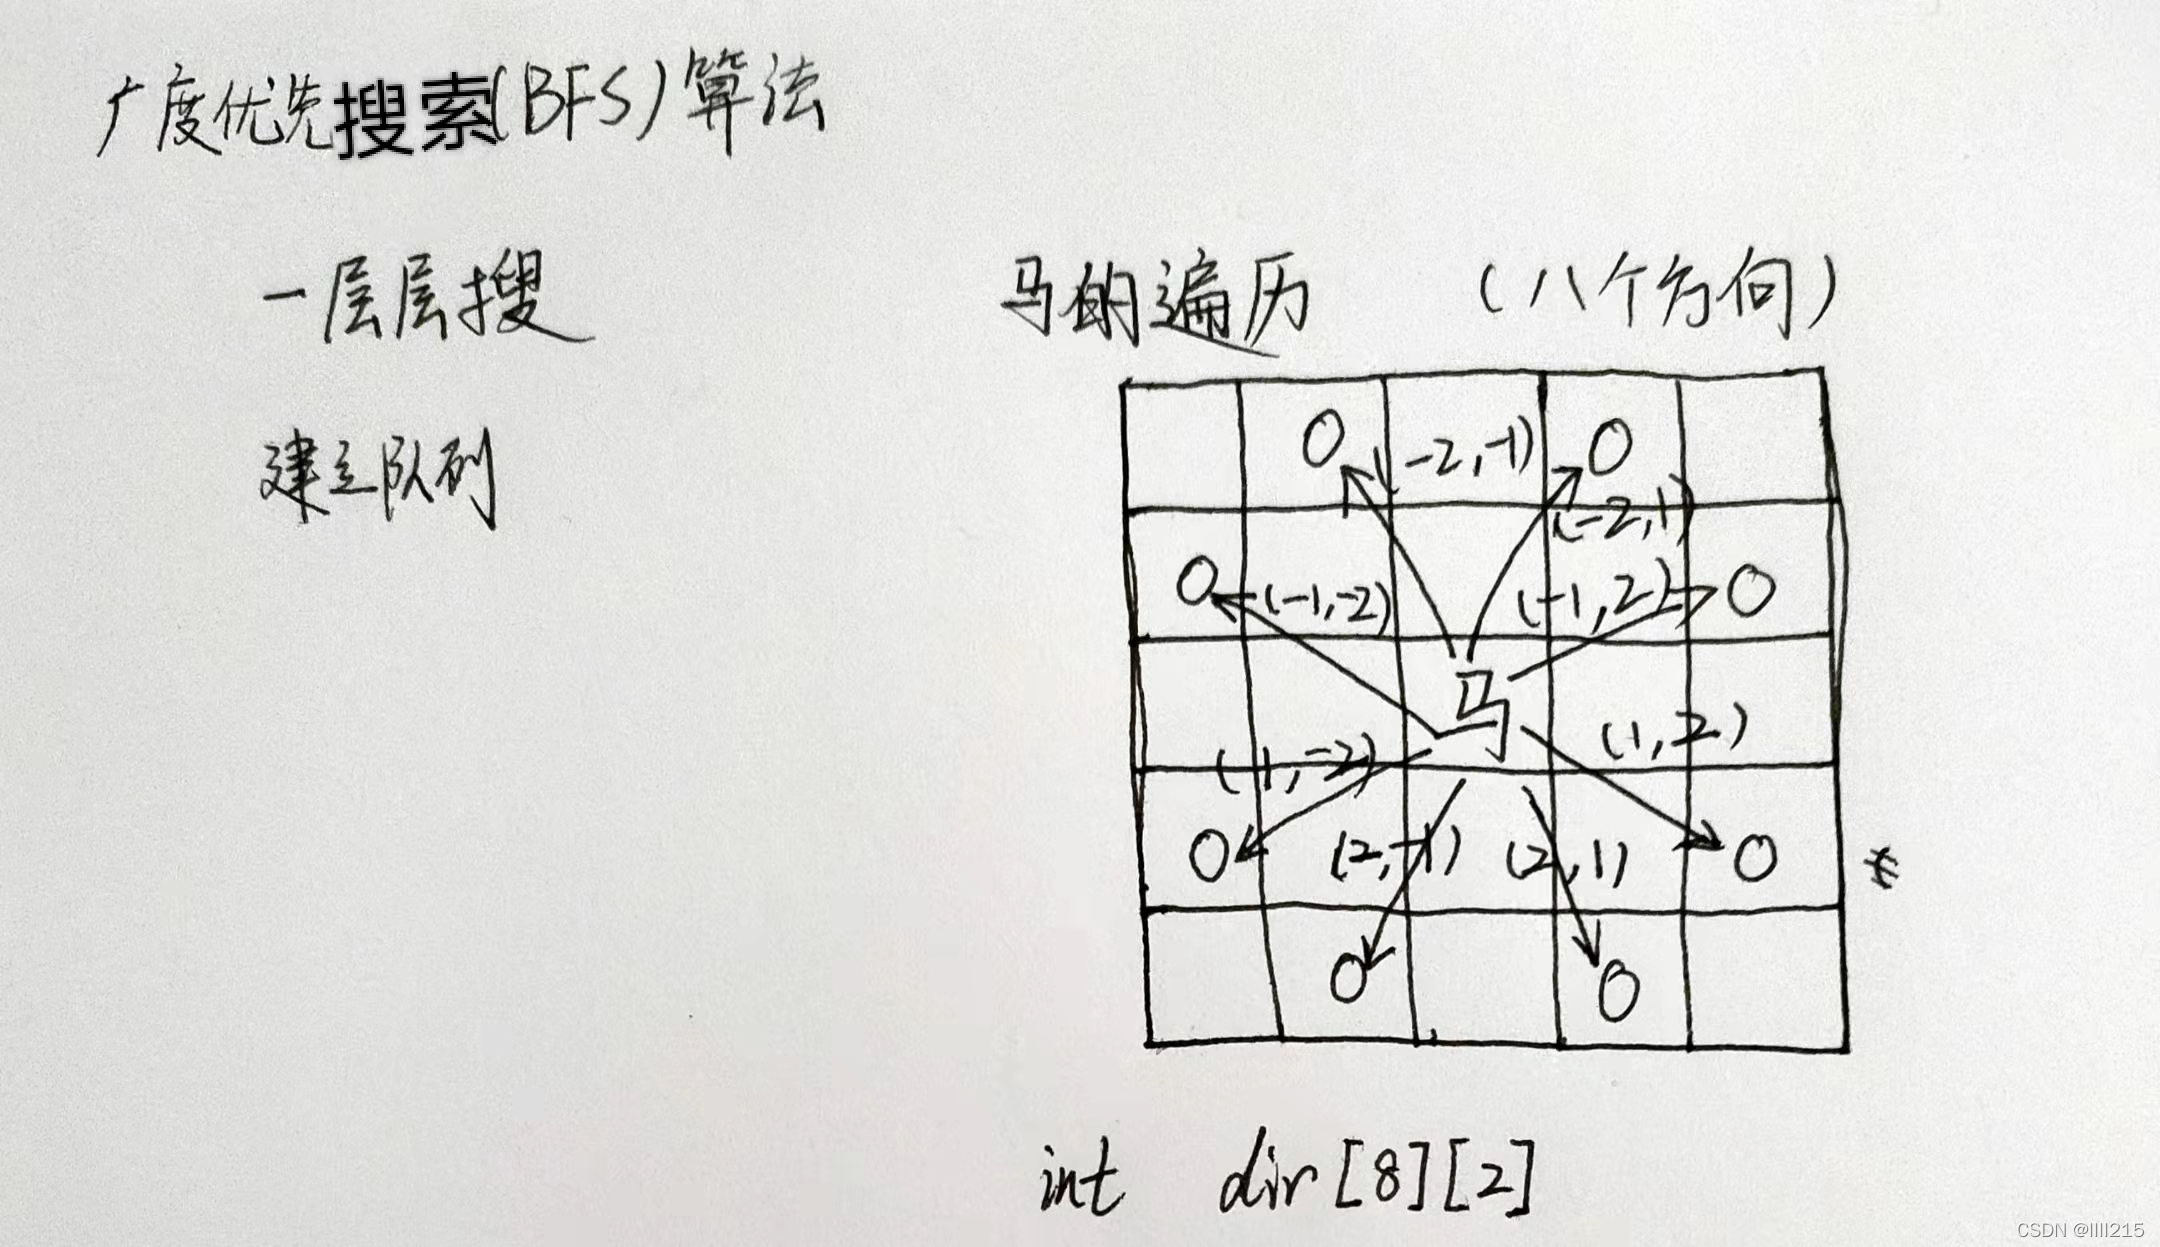 广度优先搜索(BFS)算法
一层层搜
建立队列
马的遍历 (八个方向)
O (-2,-1) O
(-2,1)
O (-1,-2) (-1,2) O
马
(1,-2) (1,2)
O (2,-1) (2,1) O
O O
int dir[8][2]
CSDN @llll215